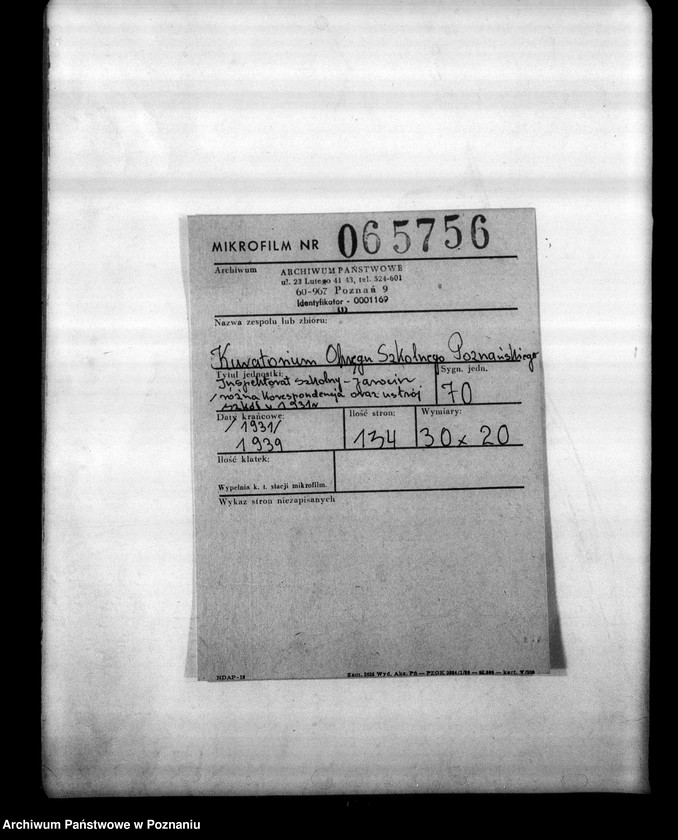 MIKROFILM NR 065756
Archiwum ARCHIWUM PAŃSTWOWE
ul. 23 Lutego 41 43, tel. 524-601
60-967 Poznań 9
Identyfikator - 0001169
(1)
Nazwa zespołu lub zbioru:
Kuratorium Okręgu Szkolnego Poznańskiego
Tytuł jednostki:
Inspektorat szkolny - Jarocin
/różna korespondencja oraz ustrój
szkół w 1931r
Sygn. jedn.
70
Daty krańcowe:
/1931/
1939
Ilość stron:
134
Wymiary:
30 x 20
Ilość klatek:
Wypełnia k. t. stacji mikrofilm.
Wykaz stron niezapisanych
NDAP-18
Zam. Wyd. Aks. Pń — PZGK — kart.
Archiwum Państwowe w Poznaniu